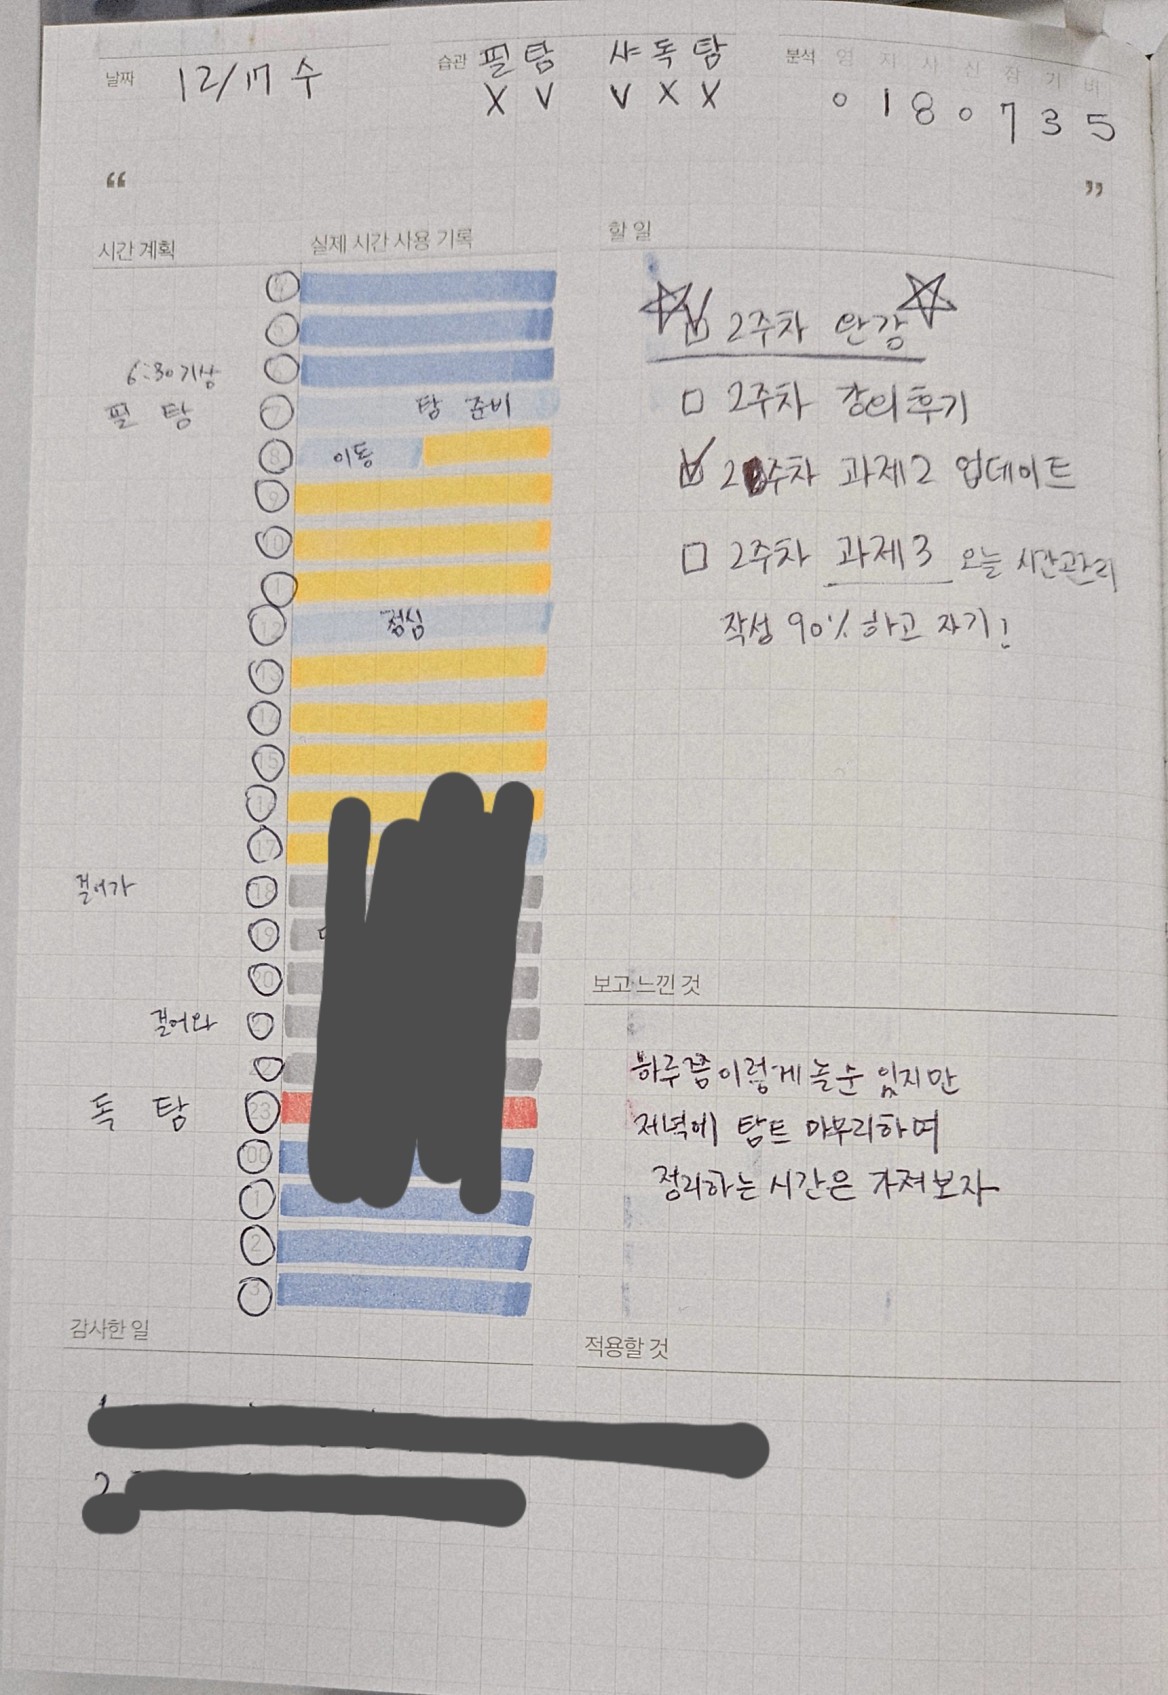 날짜 12/17 수
습관 필 탐 샤 독 탐
X V V X X
분석 영 지 사 신 잠 거 비
0 1 8 0 7 3 5
“ ”
시간 계획
실제 시간 사용 기록
할 일
4
5
6:30 기상 6
필 탐 7 탐 준비
8 이동
9
10
11
12 점심
13
14
15
16
17
걸어가 18
19
20
걸어와 21
22
독 탐 23
00
1
2
3
2주차 완강
2주차 강의후기
2주차 과제2 업데이트
2주차 과제3 오늘 시간관리
작성 90% 하고 자기!
보고 느낀 것
하루쯤 이렇게 놀 순 있지만
저녁에 탐트 마무리하며
정리하는 시간은 가져보자
감사한 일
적용할 것